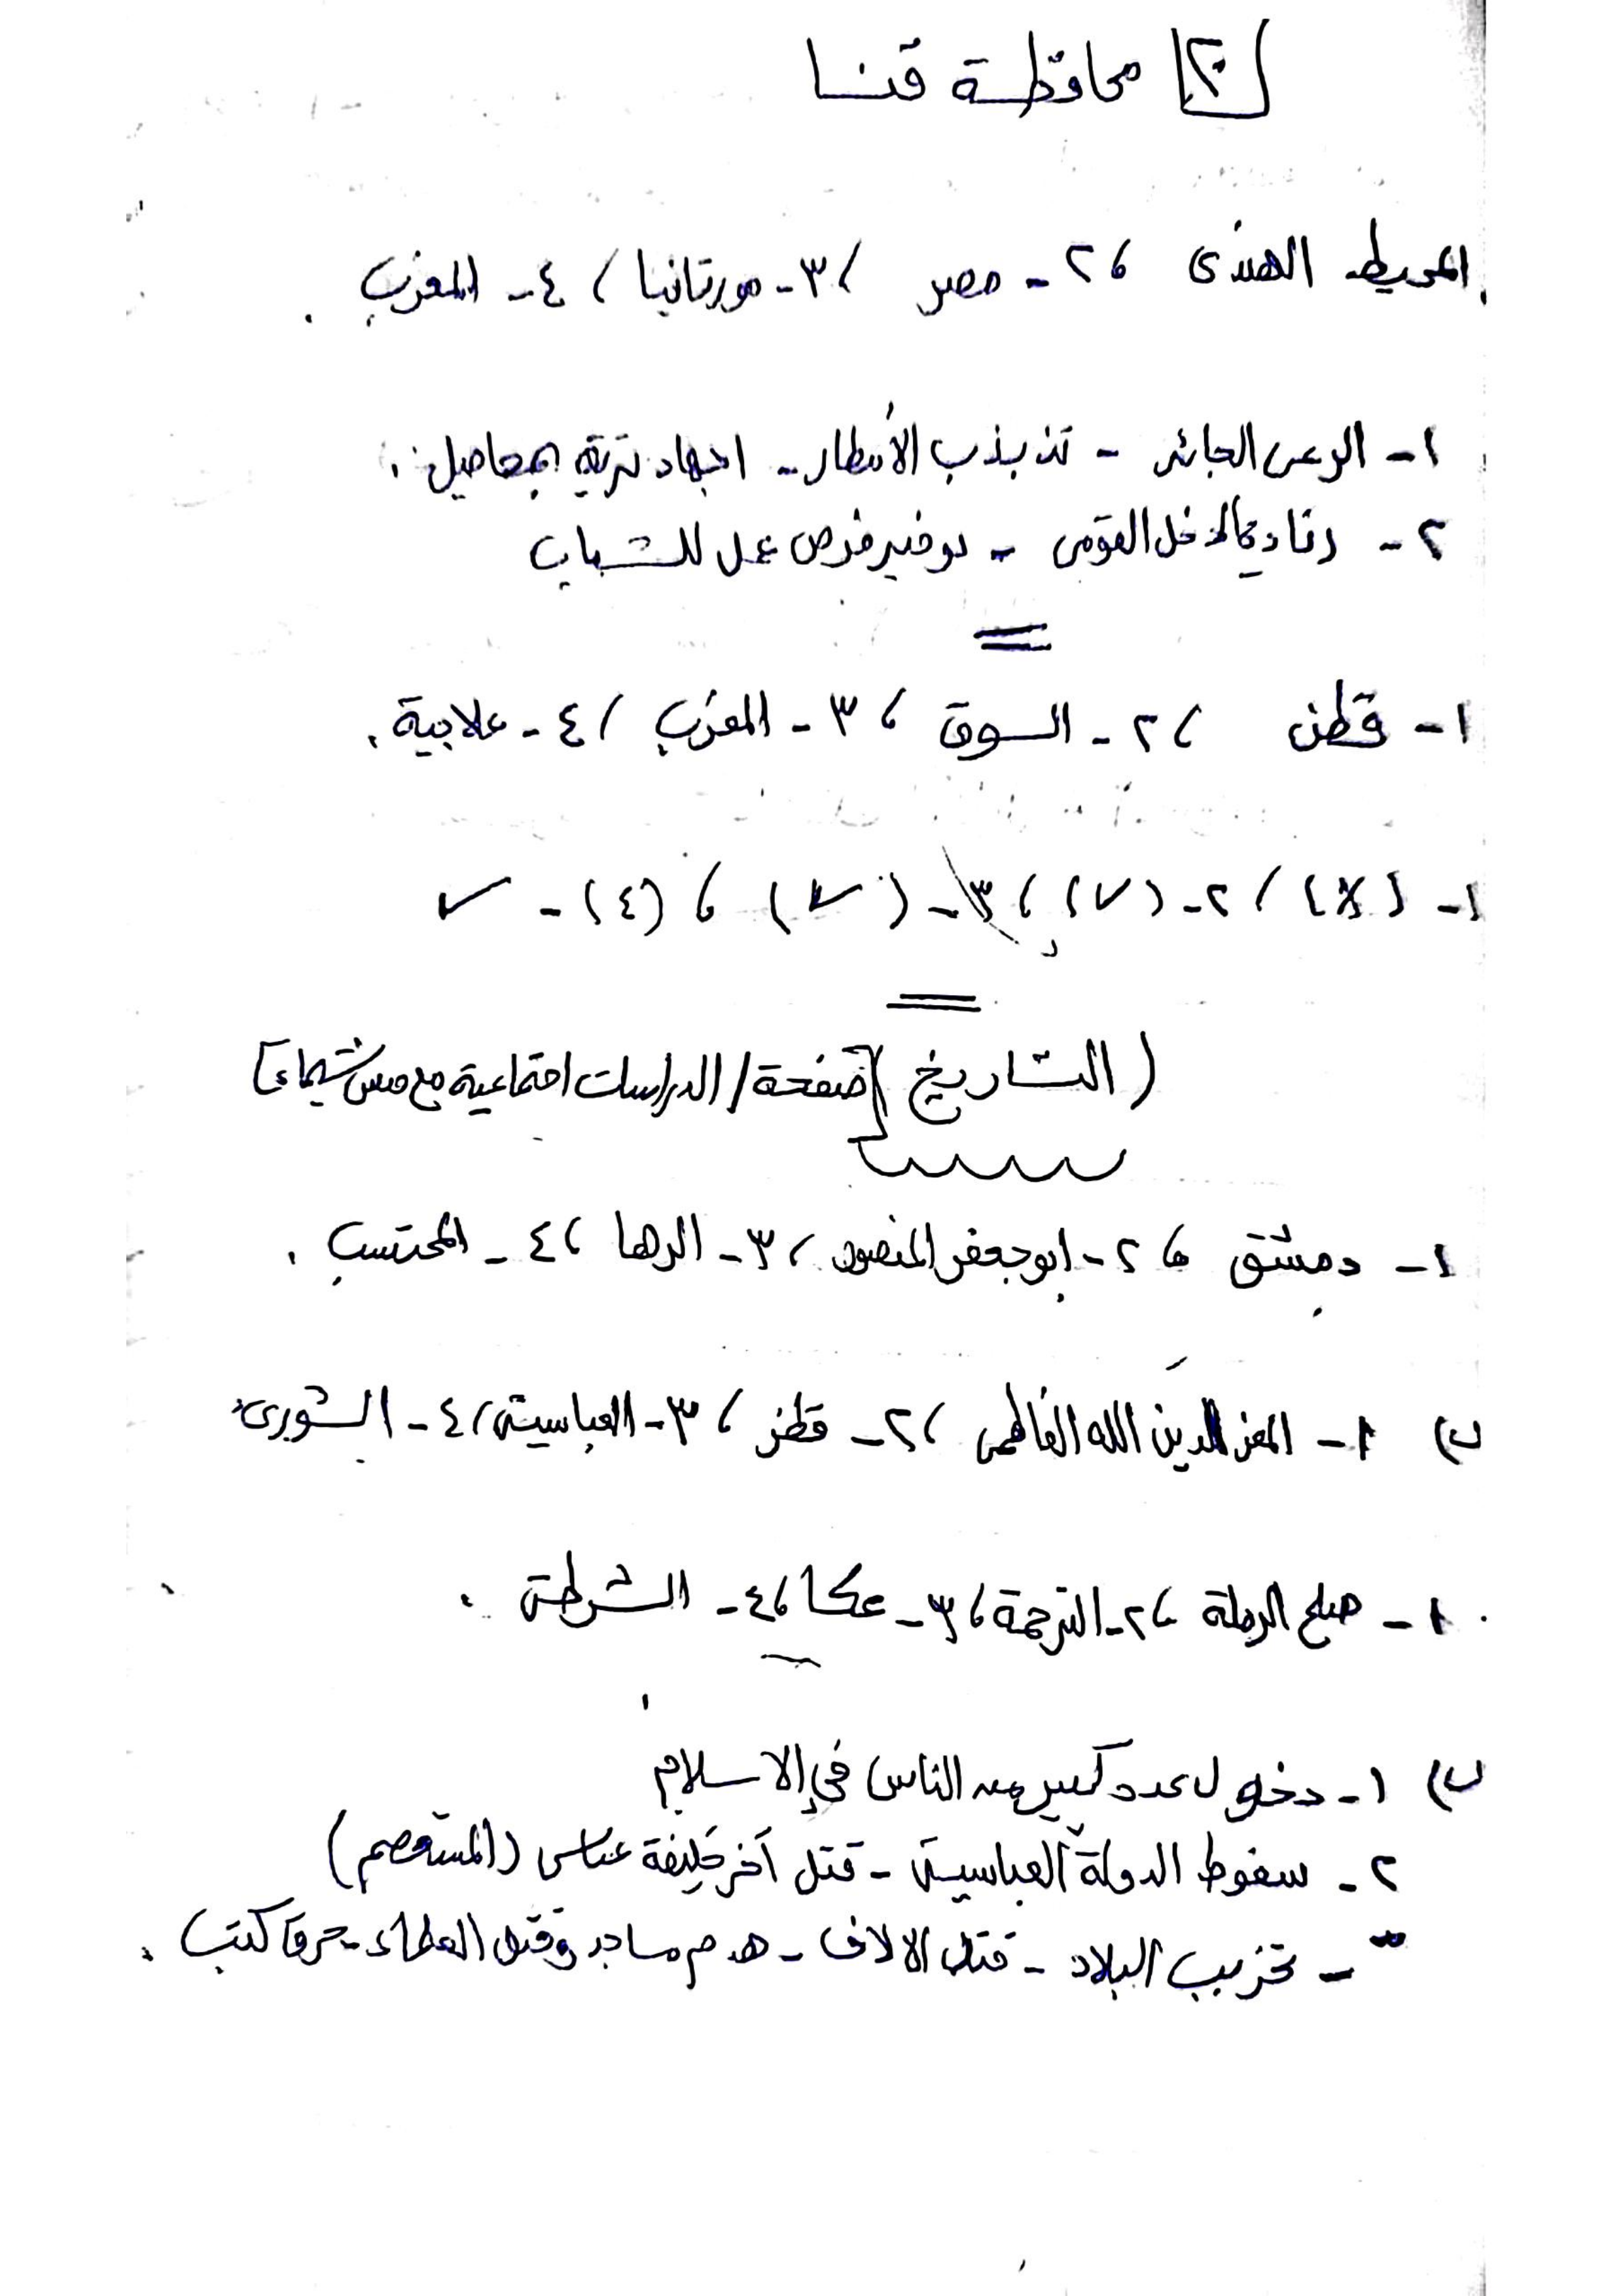 ٢ محافظة قنا
المحيط الهندى ، ٢- مصر ، ٣- مورتانيا ، ٤- المغرب .
١- الرعى الجائر - تذبذب الأمطار - اجهاد تربة بمحاصيل .
٢- الدخل القومى - توفير فرص عمل للشباب
١- قطن ، ٢- السوق ، ٣- المغرب ، ٤- علاجية .
١- (X) ، ٢- (✓) ، ٣- (✓) ، (٤) - ✓
(التاريخ) [صفحة / الدراسات اجتماعية مع مس شيماء]
١- دمشق ، ٢- ابو جعفر المنصور ، ٣- الرها ، ٤- المحتسب .
ب) ١- المعز لدين الله الفاطمى ، ٢- قطز ، ٣- العباسية ، ٤- الشورى
١- صلح الرملة ، ٢- الترجمة ، ٣- عكا ، ٤- الشرطة .
ب) ١- دخول عدد كبير من الناس فى الاسلام
٢- سقوط الدولة العباسية - قتل آخر خليفة عباسى (المستعصم)
- تخريب البلاد - قتل الالاف - هدم مساجد وقتل العلماء - حرق كتب .